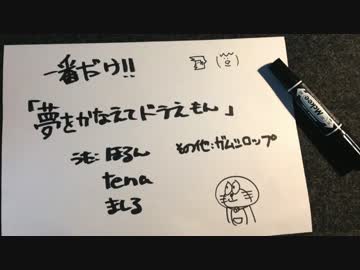 一番だけ!!
「夢をかなえてドラえもん」
うた:ほるん
その他:ガムシロップ
tena
ましろ